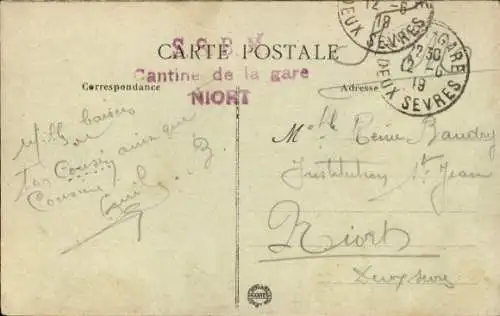 S.S.B.M.
CARTE POSTALE
Cantine de la gare
NIORT
Correspondance
Adresse
12 -6
18
DEUX SEVRES
GARE
22 30
12 -6
18
DEUX SEVRES
Mille baisers
Ton Cousin ainsi que
Cousine B.
Emile
Melle Reine Baudry
Institution St Jean
Niort
Deux Sèvres